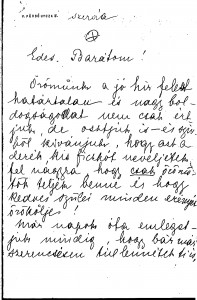 szerda
Édes Barátom!
Örömünk a jó hír felett
határtalan és nagy bol-
dogságokat nem csak ért
jük, de osztjuk is – és szív
ből kívánjuk, hogy azt a
derék kis fickót neveljétek
fel nagyra hogy csak örömö
tök teljék benne és hogy
kedves szülei minden erényét
örökölje!
Már napok óta emleget-
jük mindig, hogy bár már
szerencsésen túl lennétek